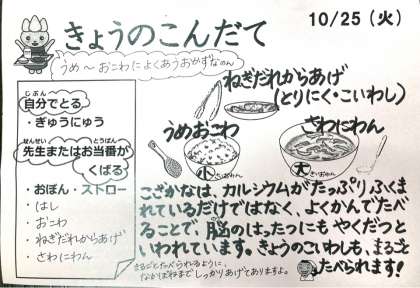 きょうのこんだて
10/25(火)
うめ〜おこわによくあうおかずなのん
じぶん
自分でとる
・ぎゅうにゅう
せんせい とうばん
先生またはお当番が
くばる
・おぼん・ストロー
・はし
・おこわ
・ねぎだれからあげ
・さわにわん
ねぎだれからあげ
(とりにく・こいわし)
うめおこわ
さわにわん
小 さいおわん
大 きいおわん
こざかなは、カルシウムがたっぷりふくま
れているだけではなく、よくかんでたべ
ることで、脳のはったつにもやくだつと
いわれています。きょうのこいわしも、まるごと
たべられます!
まるごとたべられるように、
なかほねまでしっかりあげてありますよ。